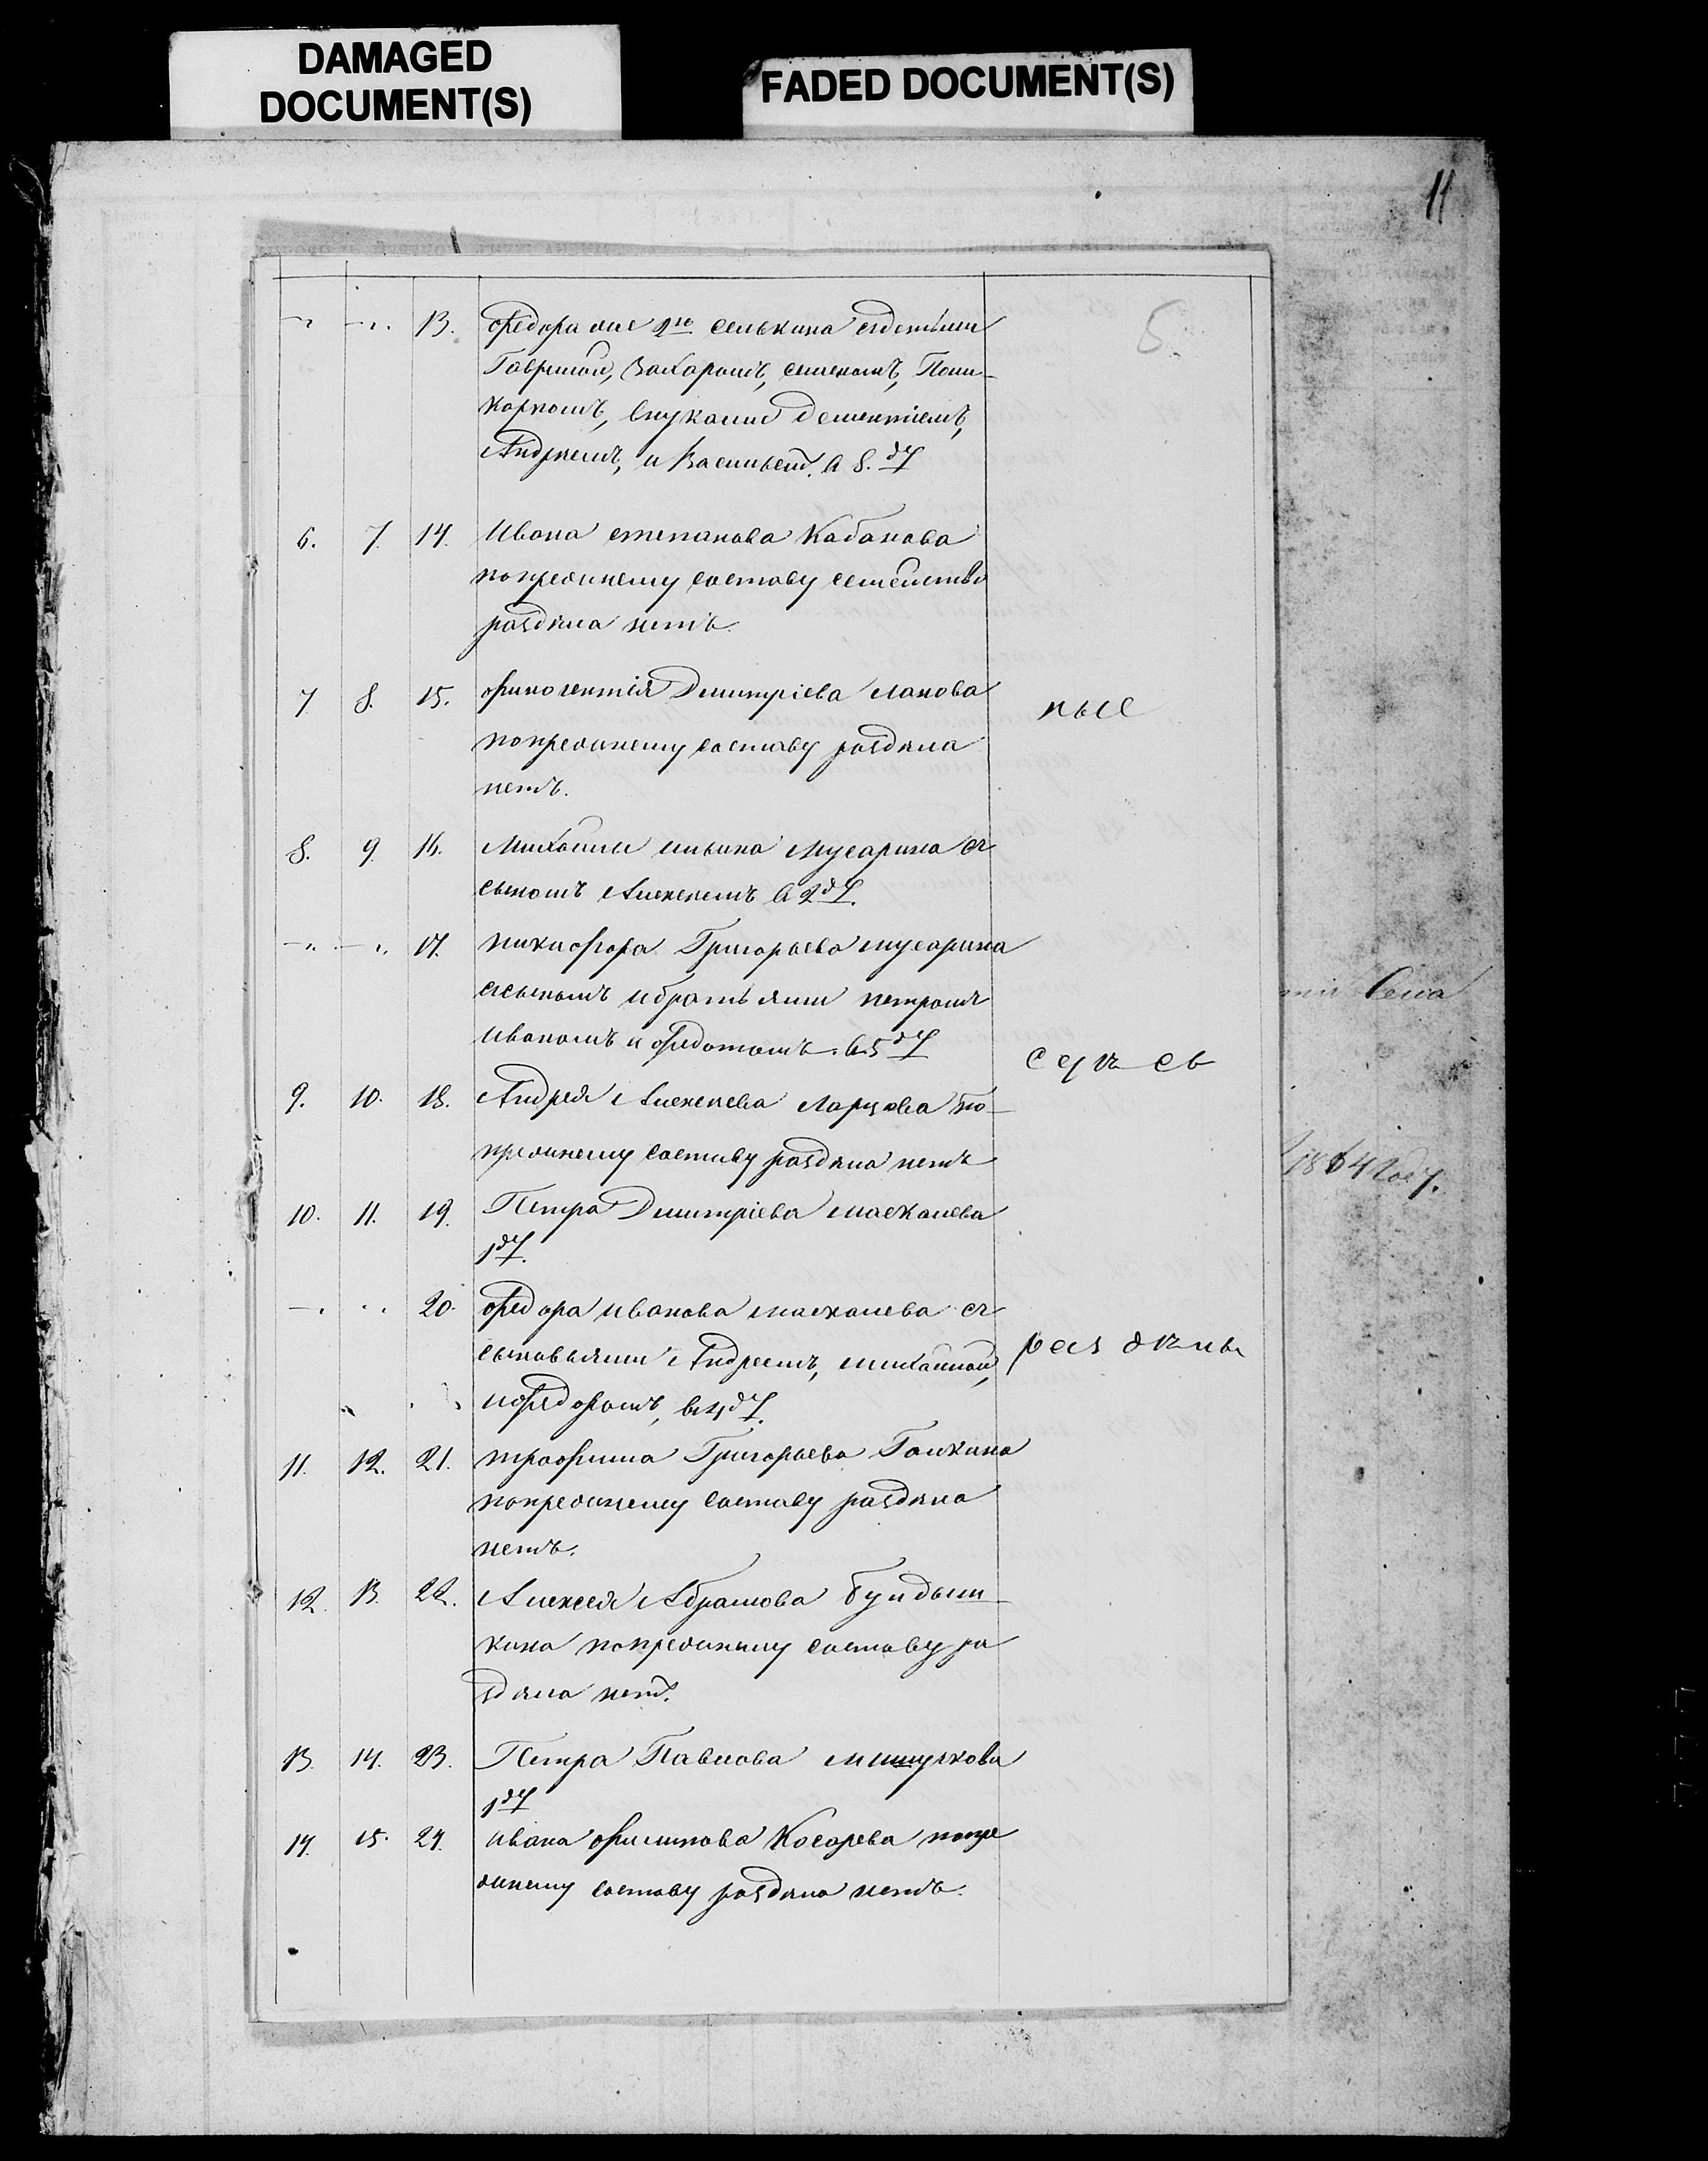 DAMAGED
DOCUMENT(S)
FADED DOCUMENT(S)
11
5.
13. Федора же 2го Селькина сдетьми
Гавриломъ, Захаромъ, Семеномъ, Поли-
карпомъ, внуками Дементіемъ,
Андреемъ, и Васильем. в 8. ду
6. 7. 14. Ивана Степанова Кабанова
попрежнему составу семейства
раздѣла нетъ.
7 8. 15. Дмитріева Панова
попрежнему составу раздѣла
нетъ.
ные
8. 9. 16. Михаила Ильина Мусарина съ
сыномъ Алексеемъ в 2 ду.
17. Никифора Григорьева Мусарина
ссыномъ ибратьями Петромъ
Иваномъ и Федотомъ в 5 ду
9. 10. 18. Андрея Алексеева Ларцова по-
прежнему составу раздѣла нетъ
10. 11. 19. Петра Дмитріева Маскалева
1 ду.
20. Федора Иванова Маскалева съ
сыновьями Андреемъ, Михаиломъ,
иФедоромъ, в 4 ду.
раздѣлы
11. 12. 21. Трофима Григорьева Галкина
попрежнему составу раздѣла
нетъ.
12. 13. 22. Алексея Абрамова
кина попрежнему составу ра
здѣла нет.
13. 14. 23. Петра Павлова Мишулкова
1 ду
14. 15. 24. Ивана Филипова Косарева попре
жнему составу раздѣла нетъ.
1864 году.